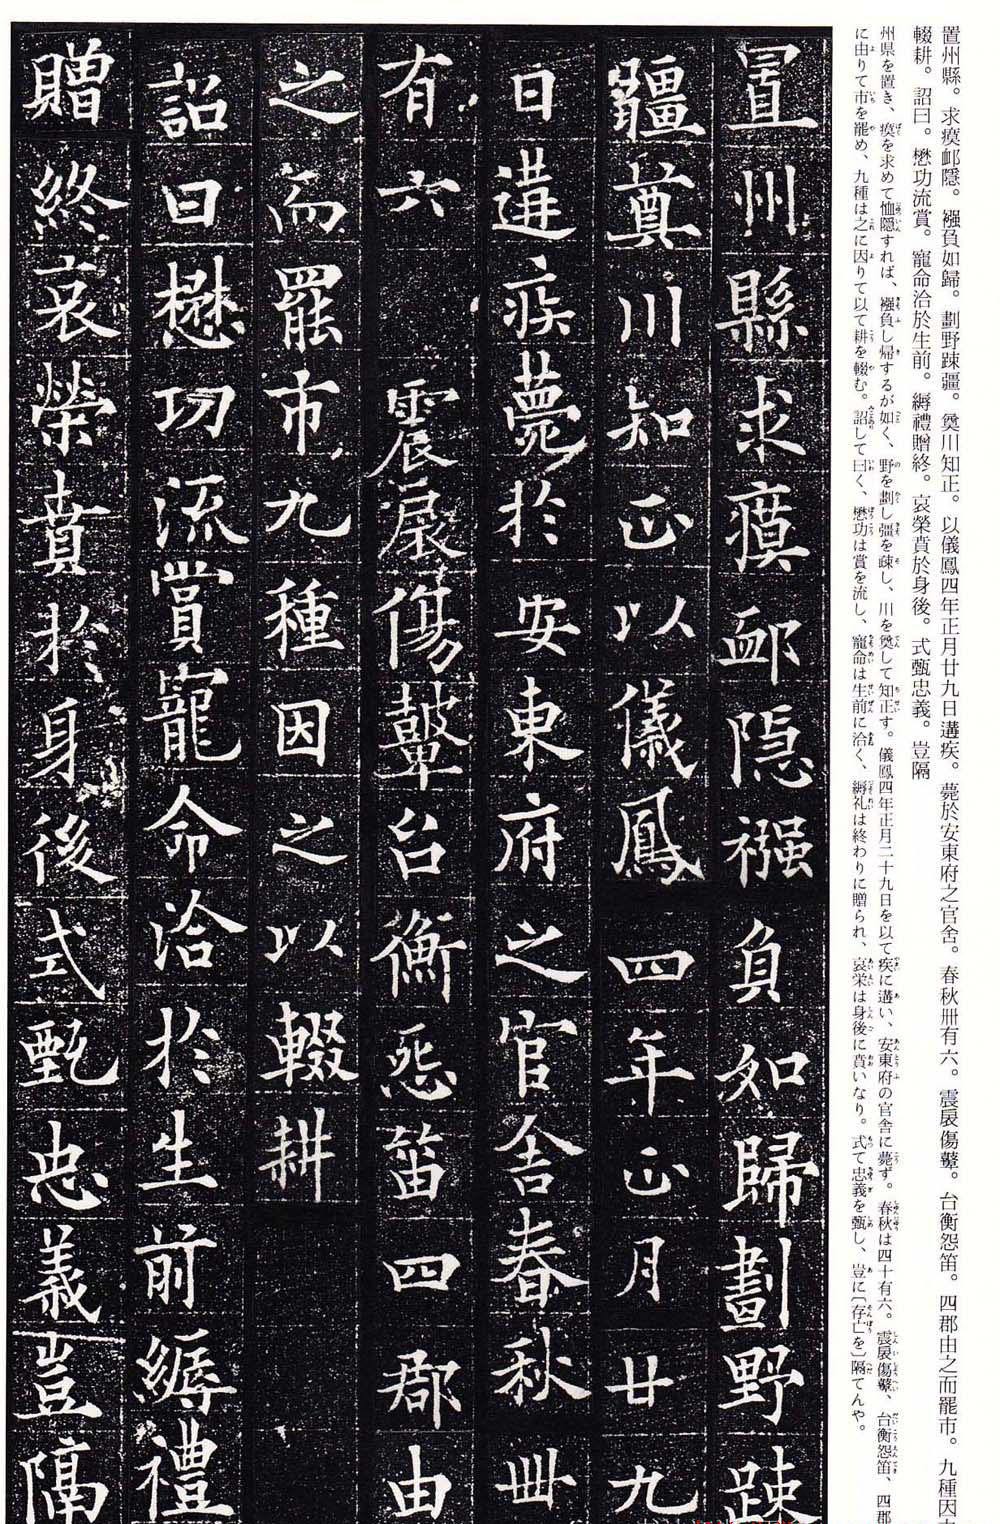 置州縣。求瘼卹隱。襁負如歸。劃野踈疆。奠川知正。以儀鳳四年正月廿九日遘疾。薨於安東府之官舍。春秋卌有六。震扆傷鼙。台衡怨笛。四郡由之而罷市。九種因
輟耕。詔曰。懋功流賞。寵命洽於生前。縟禮贈終。哀榮賁於身後。式甄忠義。豈隔
州県を置き、瘼を求めて恤隠すれば、襁負し帰するが如く、野を劃し疆を疎し、川を奠して知正す。儀鳳四年正月二十九日を以て疾に遘い、安東府の官舎に薨ず。春秋は四十有六。震扆傷鼙、台衡怨笛、四郡
に由りて市を罷め、九種は之に因りて以て耕を輟む。詔して曰く、懋功は賞を流し、寵命は生前に洽く、縟礼は終わりに贈られ、哀栄は身後に賁いなり。式て忠義を甄し、豈に〔存亡を〕隔てんや。
置州縣求瘼卹隱襁負如歸劃野踈
疆奠川知正以儀鳳四年正月廿九
日遘疾薨於安東府之官舍春秋卌
有六震扆傷鼙台衡怨笛四郡由
之而罷市九種因之以輟耕
詔曰懋功流賞寵命洽於生前縟禮
贈終哀榮賁於身後式甄忠義豈隔